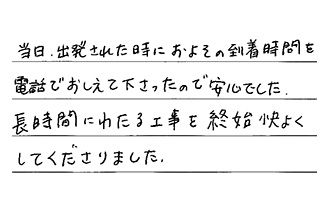 当日、出発された時におよその到着時間を
電話でおしえて下さったので安心でした。
長時間にわたる工事を終始快よく
してくださりました。